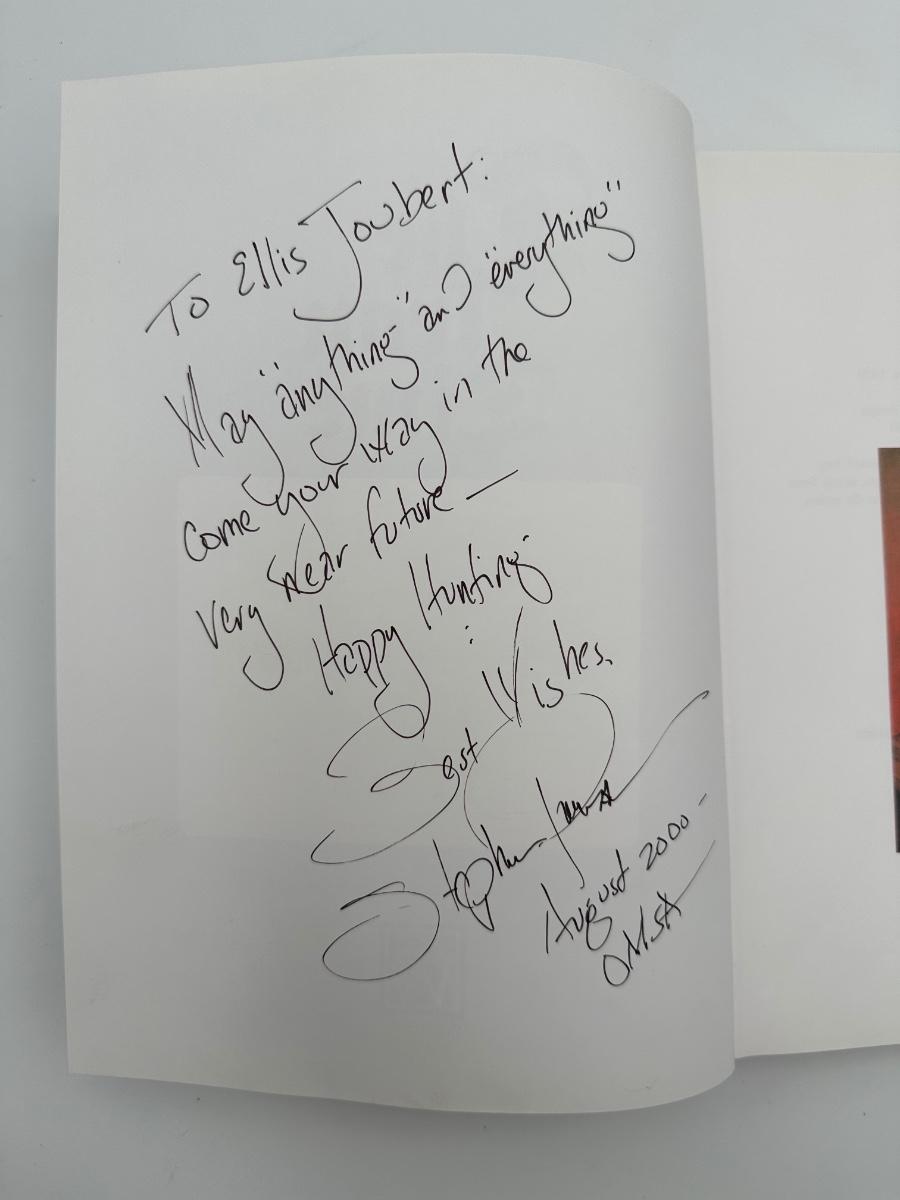 To Ellis Joubert:
May "anything" and "everything"
come your way in the
very near future —
Happy Hunting!
Best Wishes.
Stephen
August 2000 -
OMSA